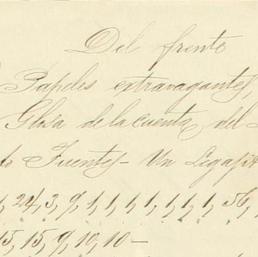 Del frente
Papeles extravagantes,
Glosa de la cuenta del
Fuentes - Un Legajo
24, 3, 9, 1, 1, 1, 1, 1, 1, 1, 56,
15, 15, 9, 10, 10 -